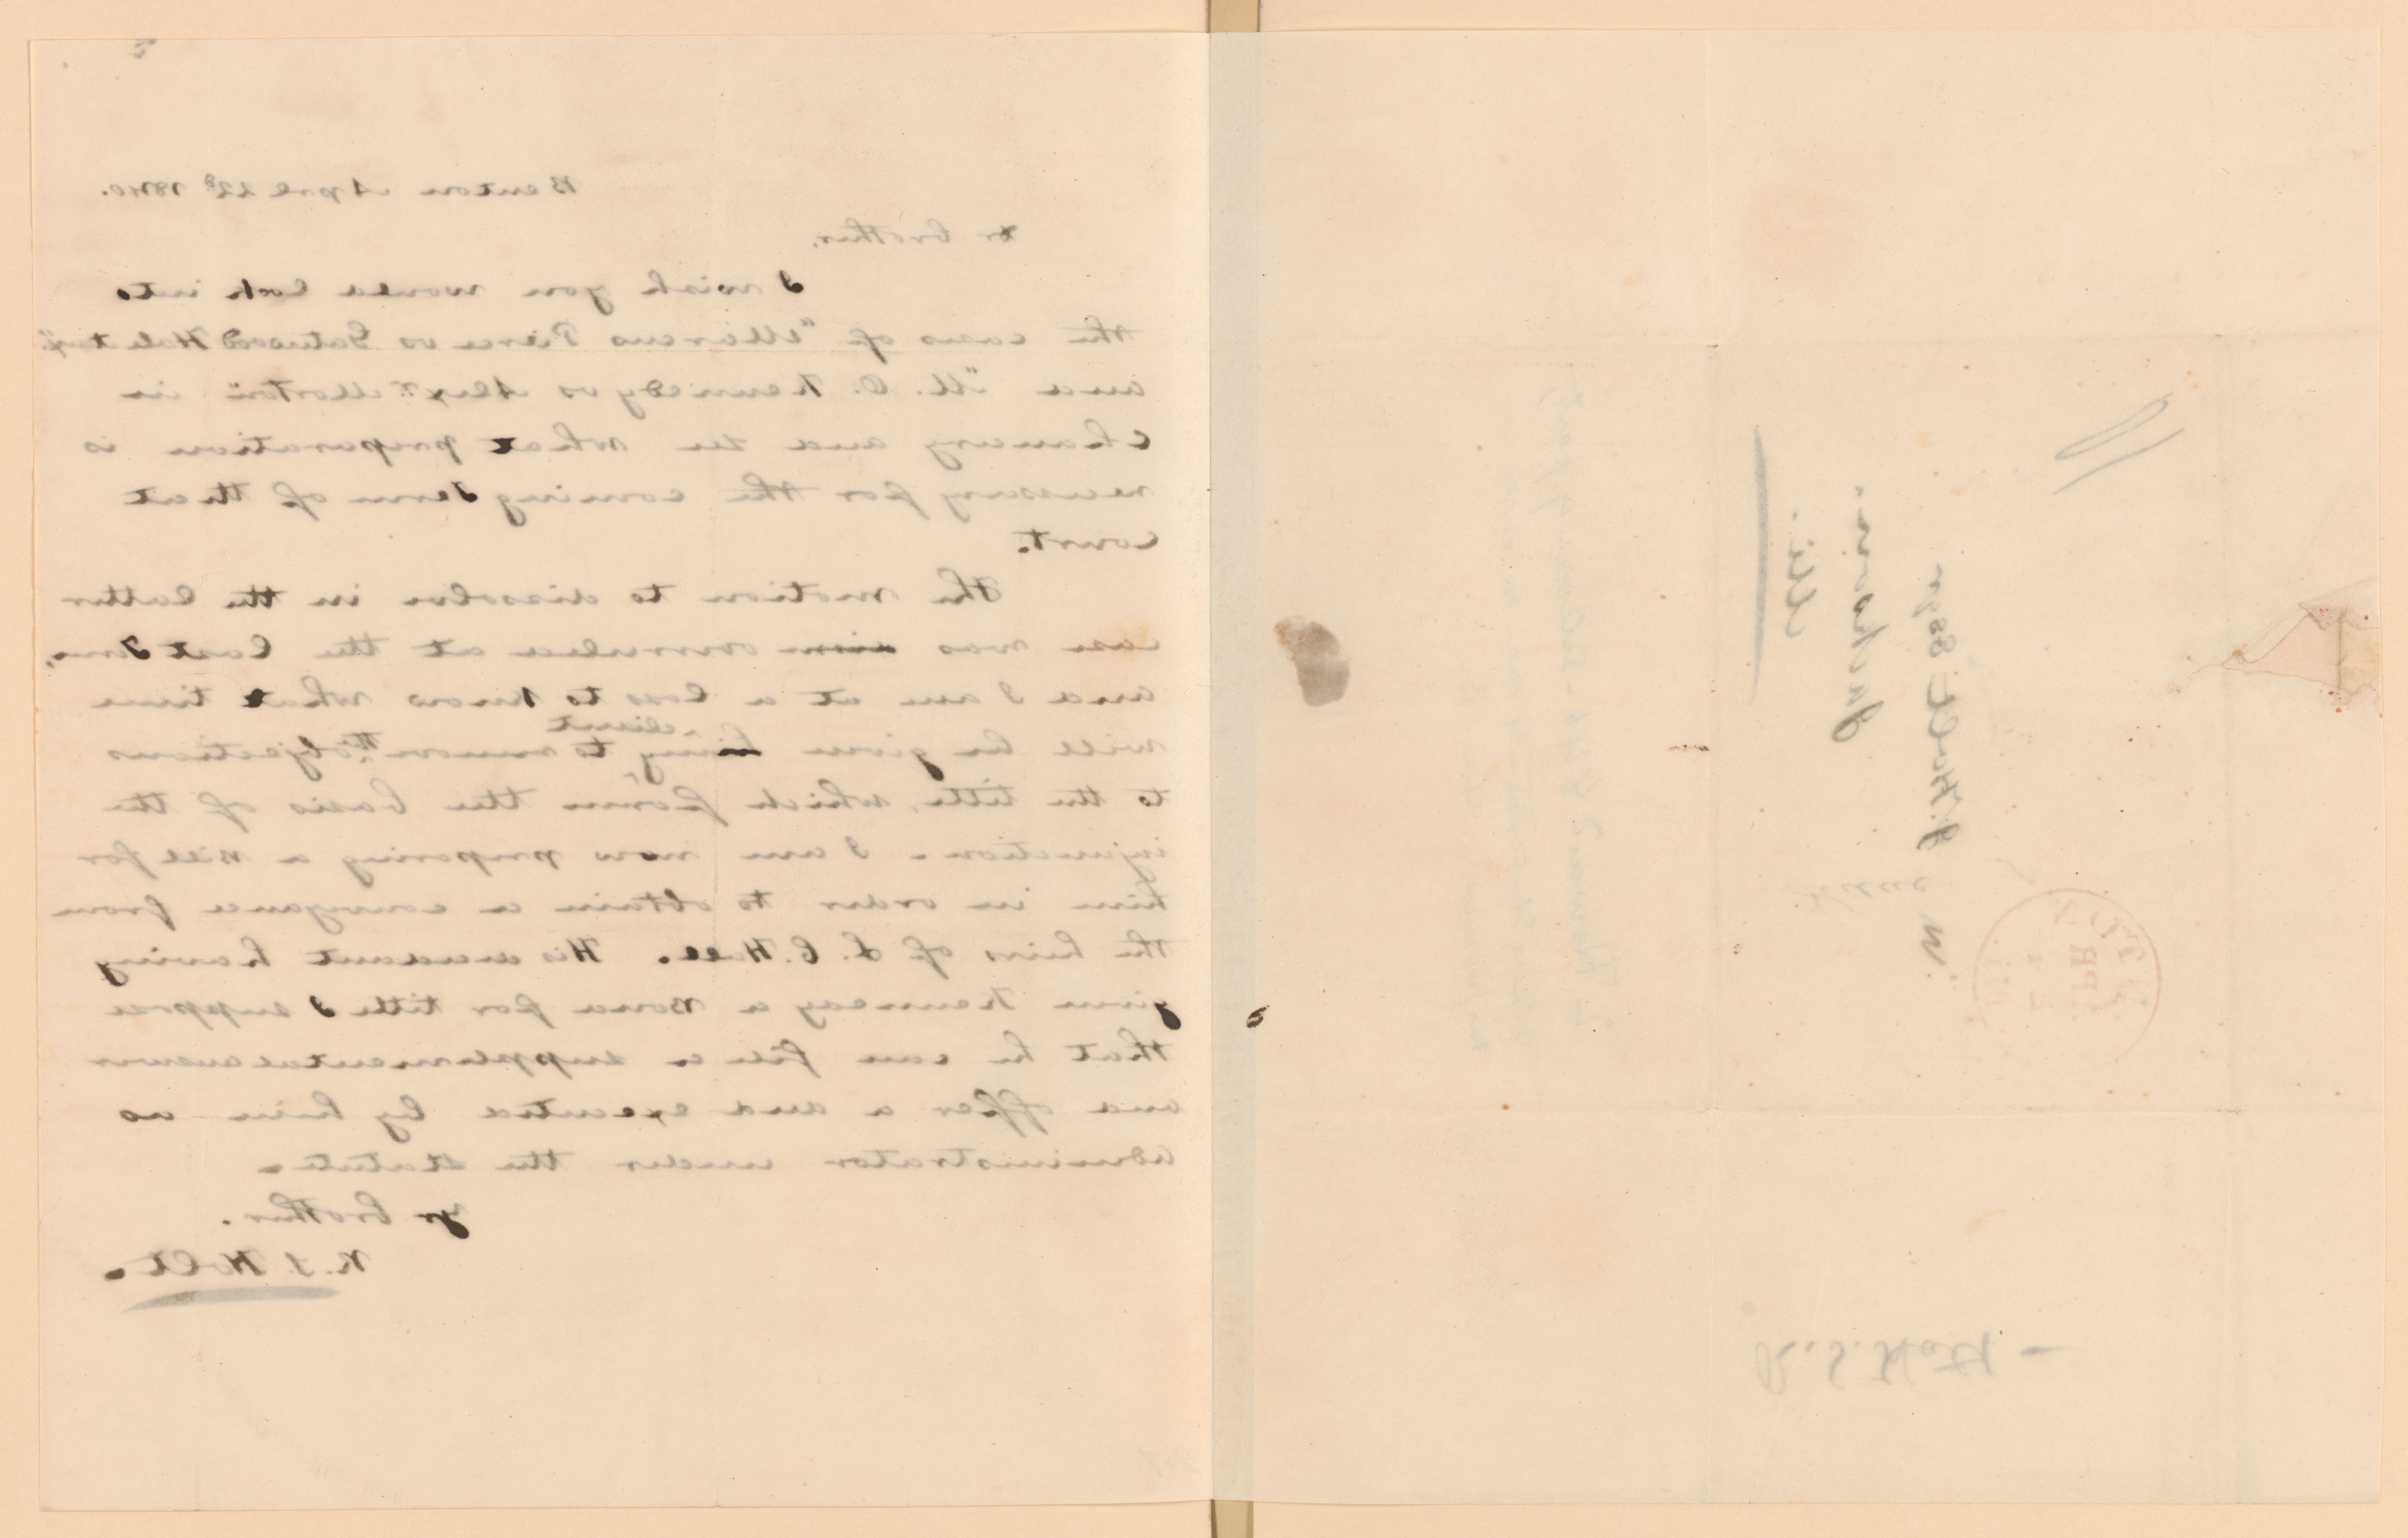 Benton April 22d 1840.
Dr brother,
I wish you would look into
the cases of "Marcus Pierce vs Gatewood Hale & ux"
and "M. O. Kennedy vs Alexr. Morton" in
chancery and see what preparation is
necessary for the coming Term of that
court.
The motion to dissolve in the latter
case was overruled at the last Term,
and I am at a loss to know what time
client
will be given my to remove the objections
to the title, which form the basis of the
injunction. I am now preparing a Bill for
him in order to obtain a conveyance from
the heirs of L. C. Hall. His having
given Kennedy a Bond for title I suppose
that he can file a supplemental answer
and offer a deed executed by him as
administrator under the statute.
yr brother.
R. S. Holt.
J. Holt Esqr
Jackson.
Mi.
APR
R. S. Holt